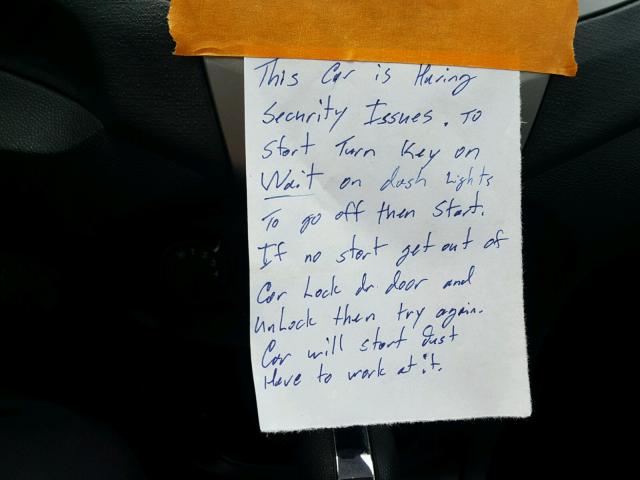 This Car is Having
Security Issues. To
Start Turn Key on
Wait on dash Lights
To go off then Start.
If no start get out of
Car Lock dr door and
UnLock then try again.
Car will start Just
Have to work at it.